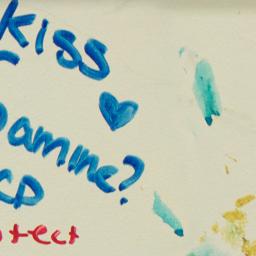 Kiss
Damme?
CD
otect